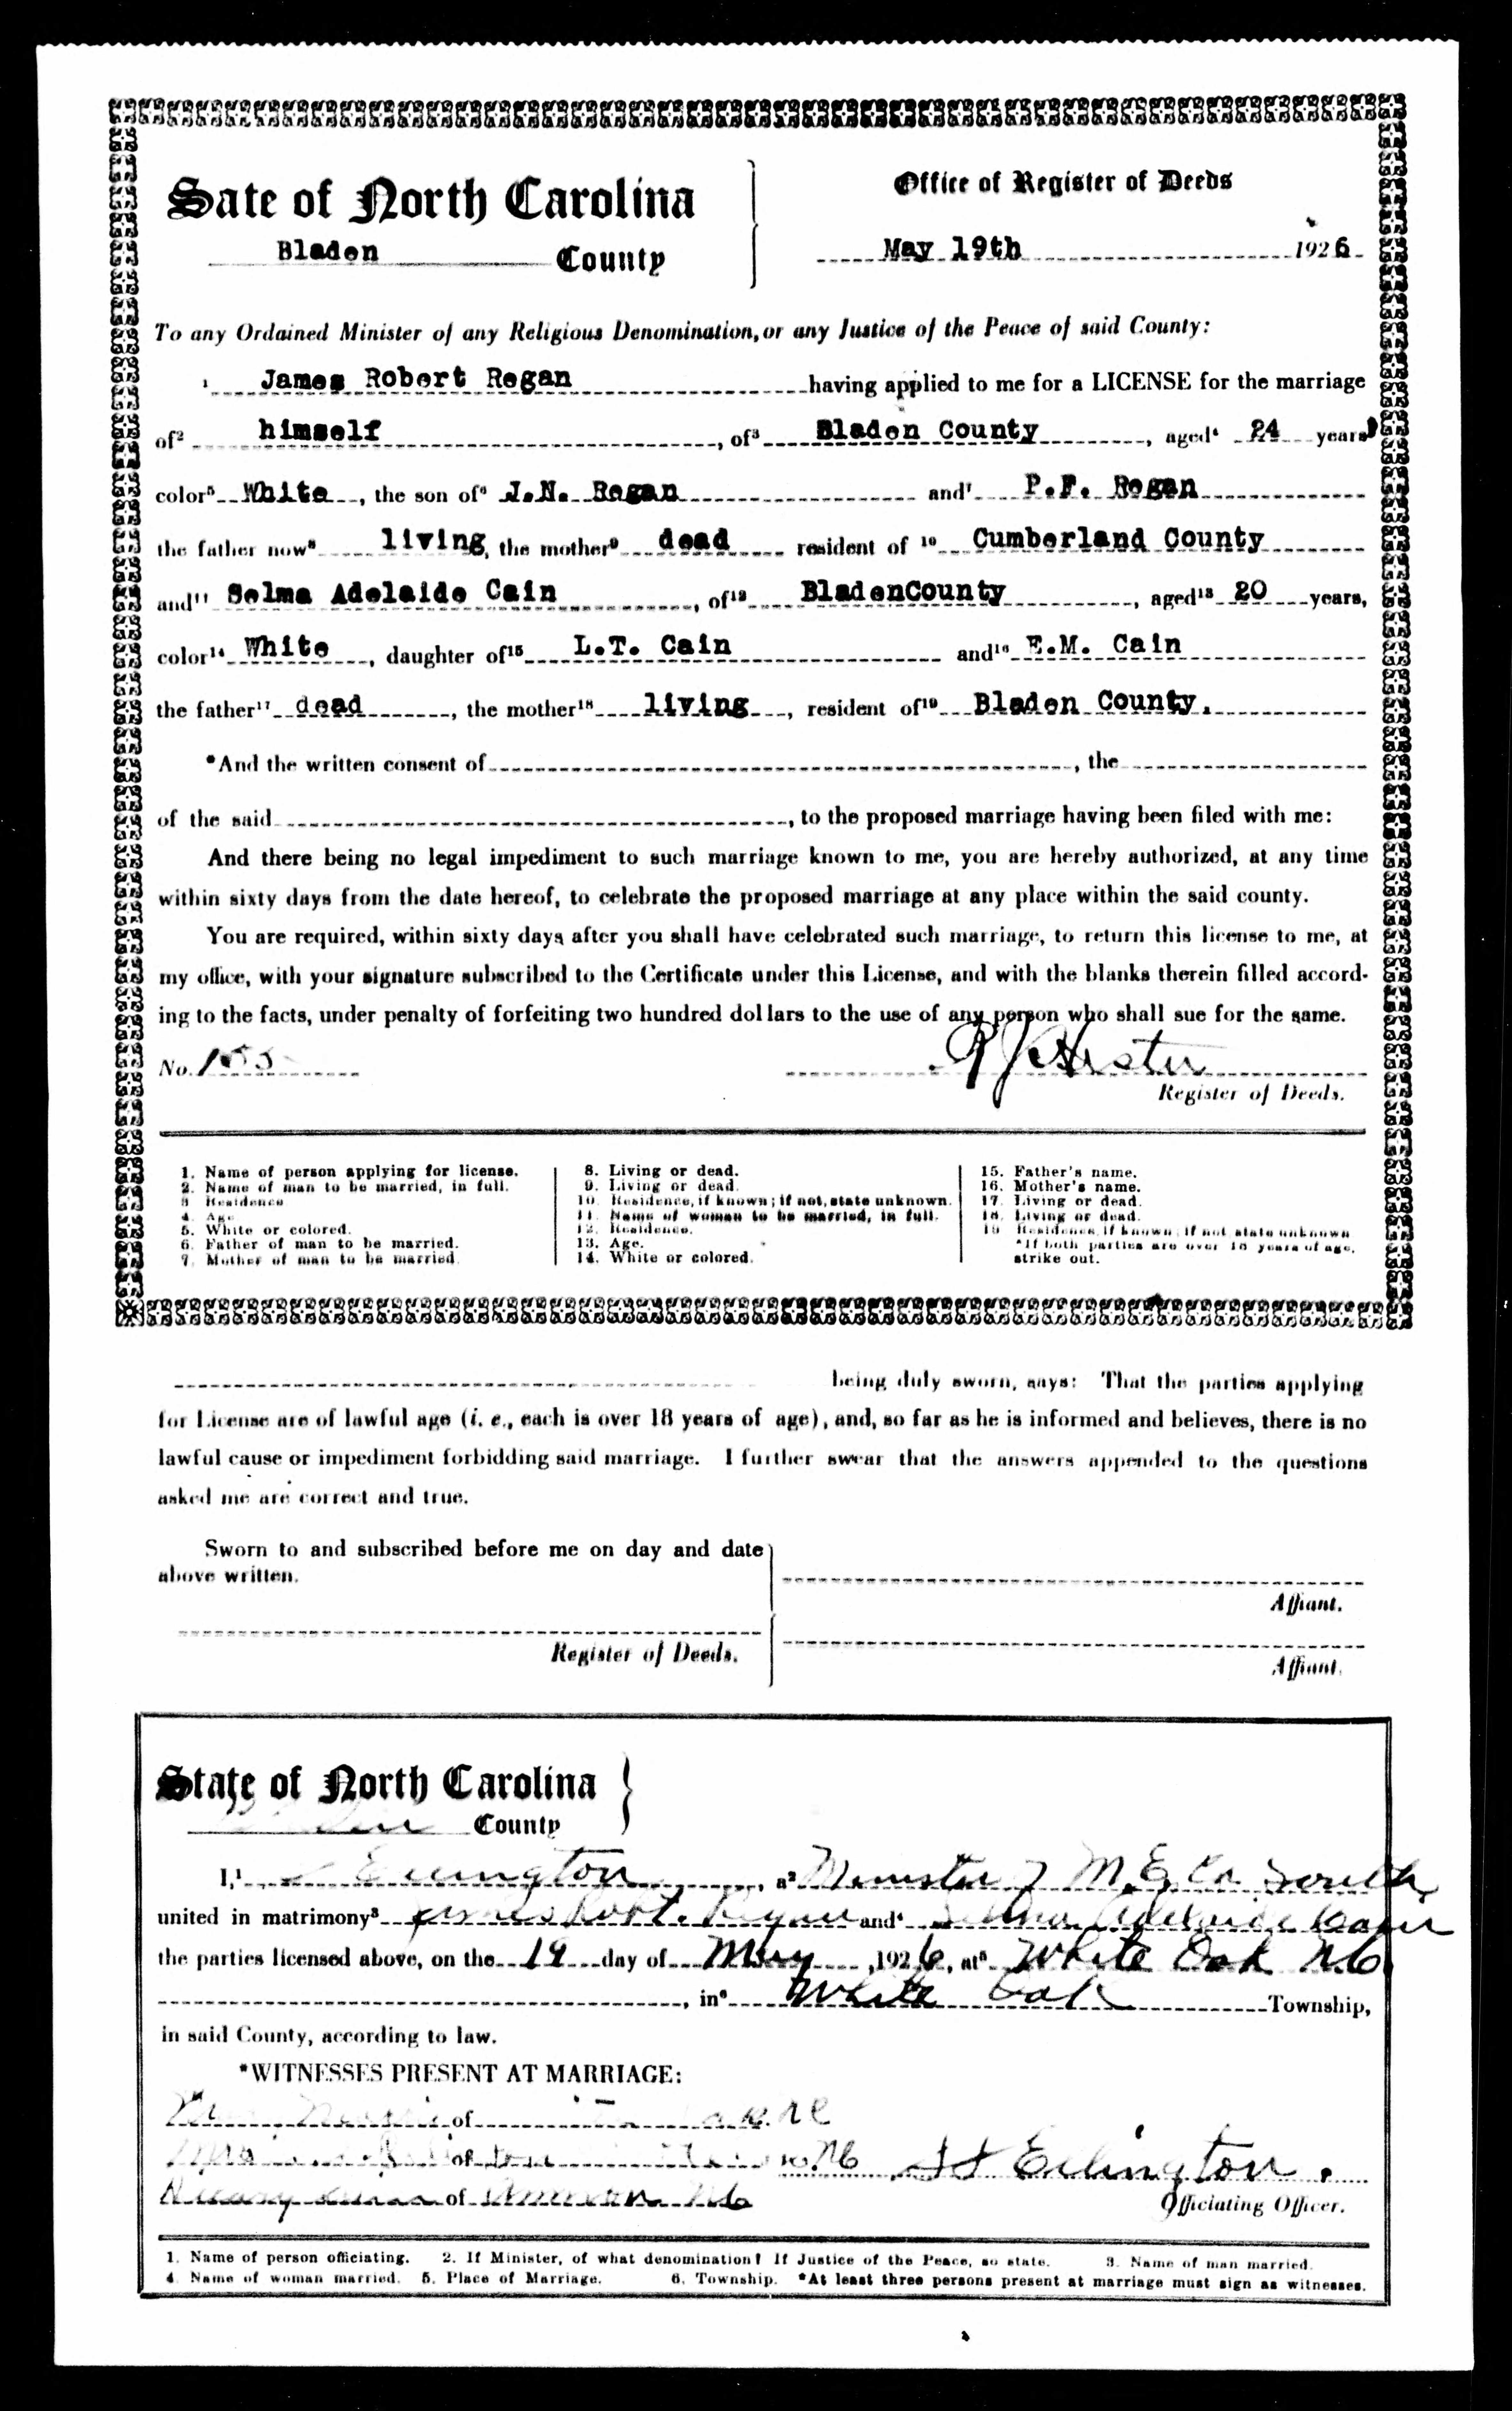 Sate of North Carolina
Bladen County
Office of Register of Deeds
May 19th 1926
To any Ordained Minister of any Religious Denomination, or any Justice of the Peace of said County:
1 James Robert Regan having applied to me for a LICENSE for the marriage
of2 himself, of3 Bladen County, aged4 24 years,
color5 White, the son of6 J.N. Regan and7 P.F. Regan
the father now8 living, the mother9 dead resident of 10 Cumberland County
and11 Selma Adelaide Cain, of12 BladenCounty, aged13 20 years,
color14 White, daughter of15 L.T. Cain and16 E.M. Cain
the father17 dead, the mother18 living, resident of19 Bladen County.
*And the written consent of, the
of the said, to the proposed marriage having been filed with me:
And there being no legal impediment to such marriage known to me, you are hereby authorized, at any time
within sixty days from the date hereof, to celebrate the proposed marriage at any place within the said county.
You are required, within sixty days after you shall have celebrated such marriage, to return this license to me, at
my office, with your signature subscribed to the Certificate under this License, and with the blanks therein filled accord-
ing to the facts, under penalty of forfeiting two hundred dollars to the use of any person who shall sue for the same.
No. 155 Hester
Register of Deeds.
1. Name of person applying for license.
2. Name of man to be married, in full.
3 Residence
4. Age
5. White or colored.
6. Father of man to be married.
7. Mother of man to be married.
8. Living or dead.
9. Living or dead.
10. Residence, if known; if not, state unknown.
11. Name of woman to be married, in full.
12. Residence.
13. Age.
14. White or colored.
15. Father's name.
16. Mother's name.
17. Living or dead.
18. Living or dead.
19 Residence, if known; if not state unknown
*If both parties are over 18 years of age,
strike out.
being duly sworn, says: That the parties applying
for License are of lawful age (i. e., each is over 18 years of age), and, so far as he is informed and believes, there is no
lawful cause or impediment forbidding said marriage. I further swear that the answers appended to the questions
asked me are correct and true.
Sworn to and subscribed before me on day and date
above written.
Affiant.
Register of Deeds.
Affiant.
State of North Carolina
County
I,1, a2 Minister M.E. Ch South
united in matrimony3 James Robt. Regan and4 Selma Adelaide Cain
the parties licensed above, on the 19 day of May, 1926, at5 White Oak N.C.
, in6 White Oak Township,
in said County, according to law.
*WITNESSES PRESENT AT MARRIAGE:
of NC
Mrs of NC
of Ammon NC
Officiating Officer.
1. Name of person officiating. 2. If Minister, of what denomination? If Justice of the Peace, so state. 3. Name of man married.
4. Name of woman married. 5. Place of Marriage. 6. Township. *At least three persons present at marriage must sign as witnesses.